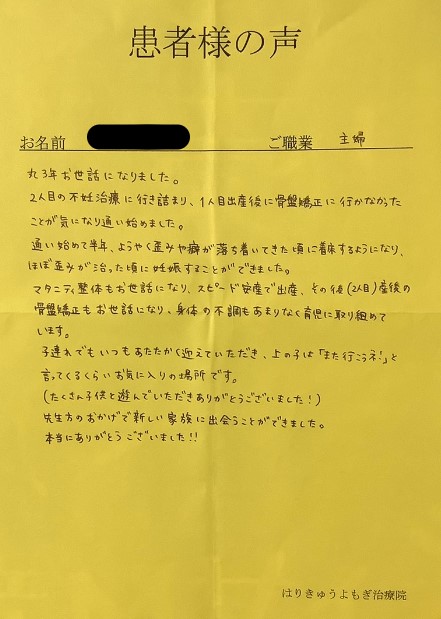 患者様の声
お名前
ご職業 主婦
丸3年お世話になりました。
2人目の不妊治療に行き詰まり、1人目出産後に骨盤矯正に行かなかった
ことが気になり通い始めました。
通い始めて半年、ようやく歪みや癖が落ち着いてきた頃に着床するようになり、
ほぼ歪みが治った頃に妊娠することができました。
マタニティ整体もお世話になり、スピード安産で出産、その後(2人目)産後の
骨盤矯正もお世話になり、身体の不調もあまりなく育児に取り組めて
います。
子連れでもいつもあたたかく迎えていただき、上の子は「また行こうネ!」と
言ってくるくらいお気に入りの場所です。
(たくさん子供と遊んでいただきありがとうございました!)
先生方のおかげで新しい家族に出会うことができました。
本当にありがとうございました!!
はりきゅうよもぎ治療院